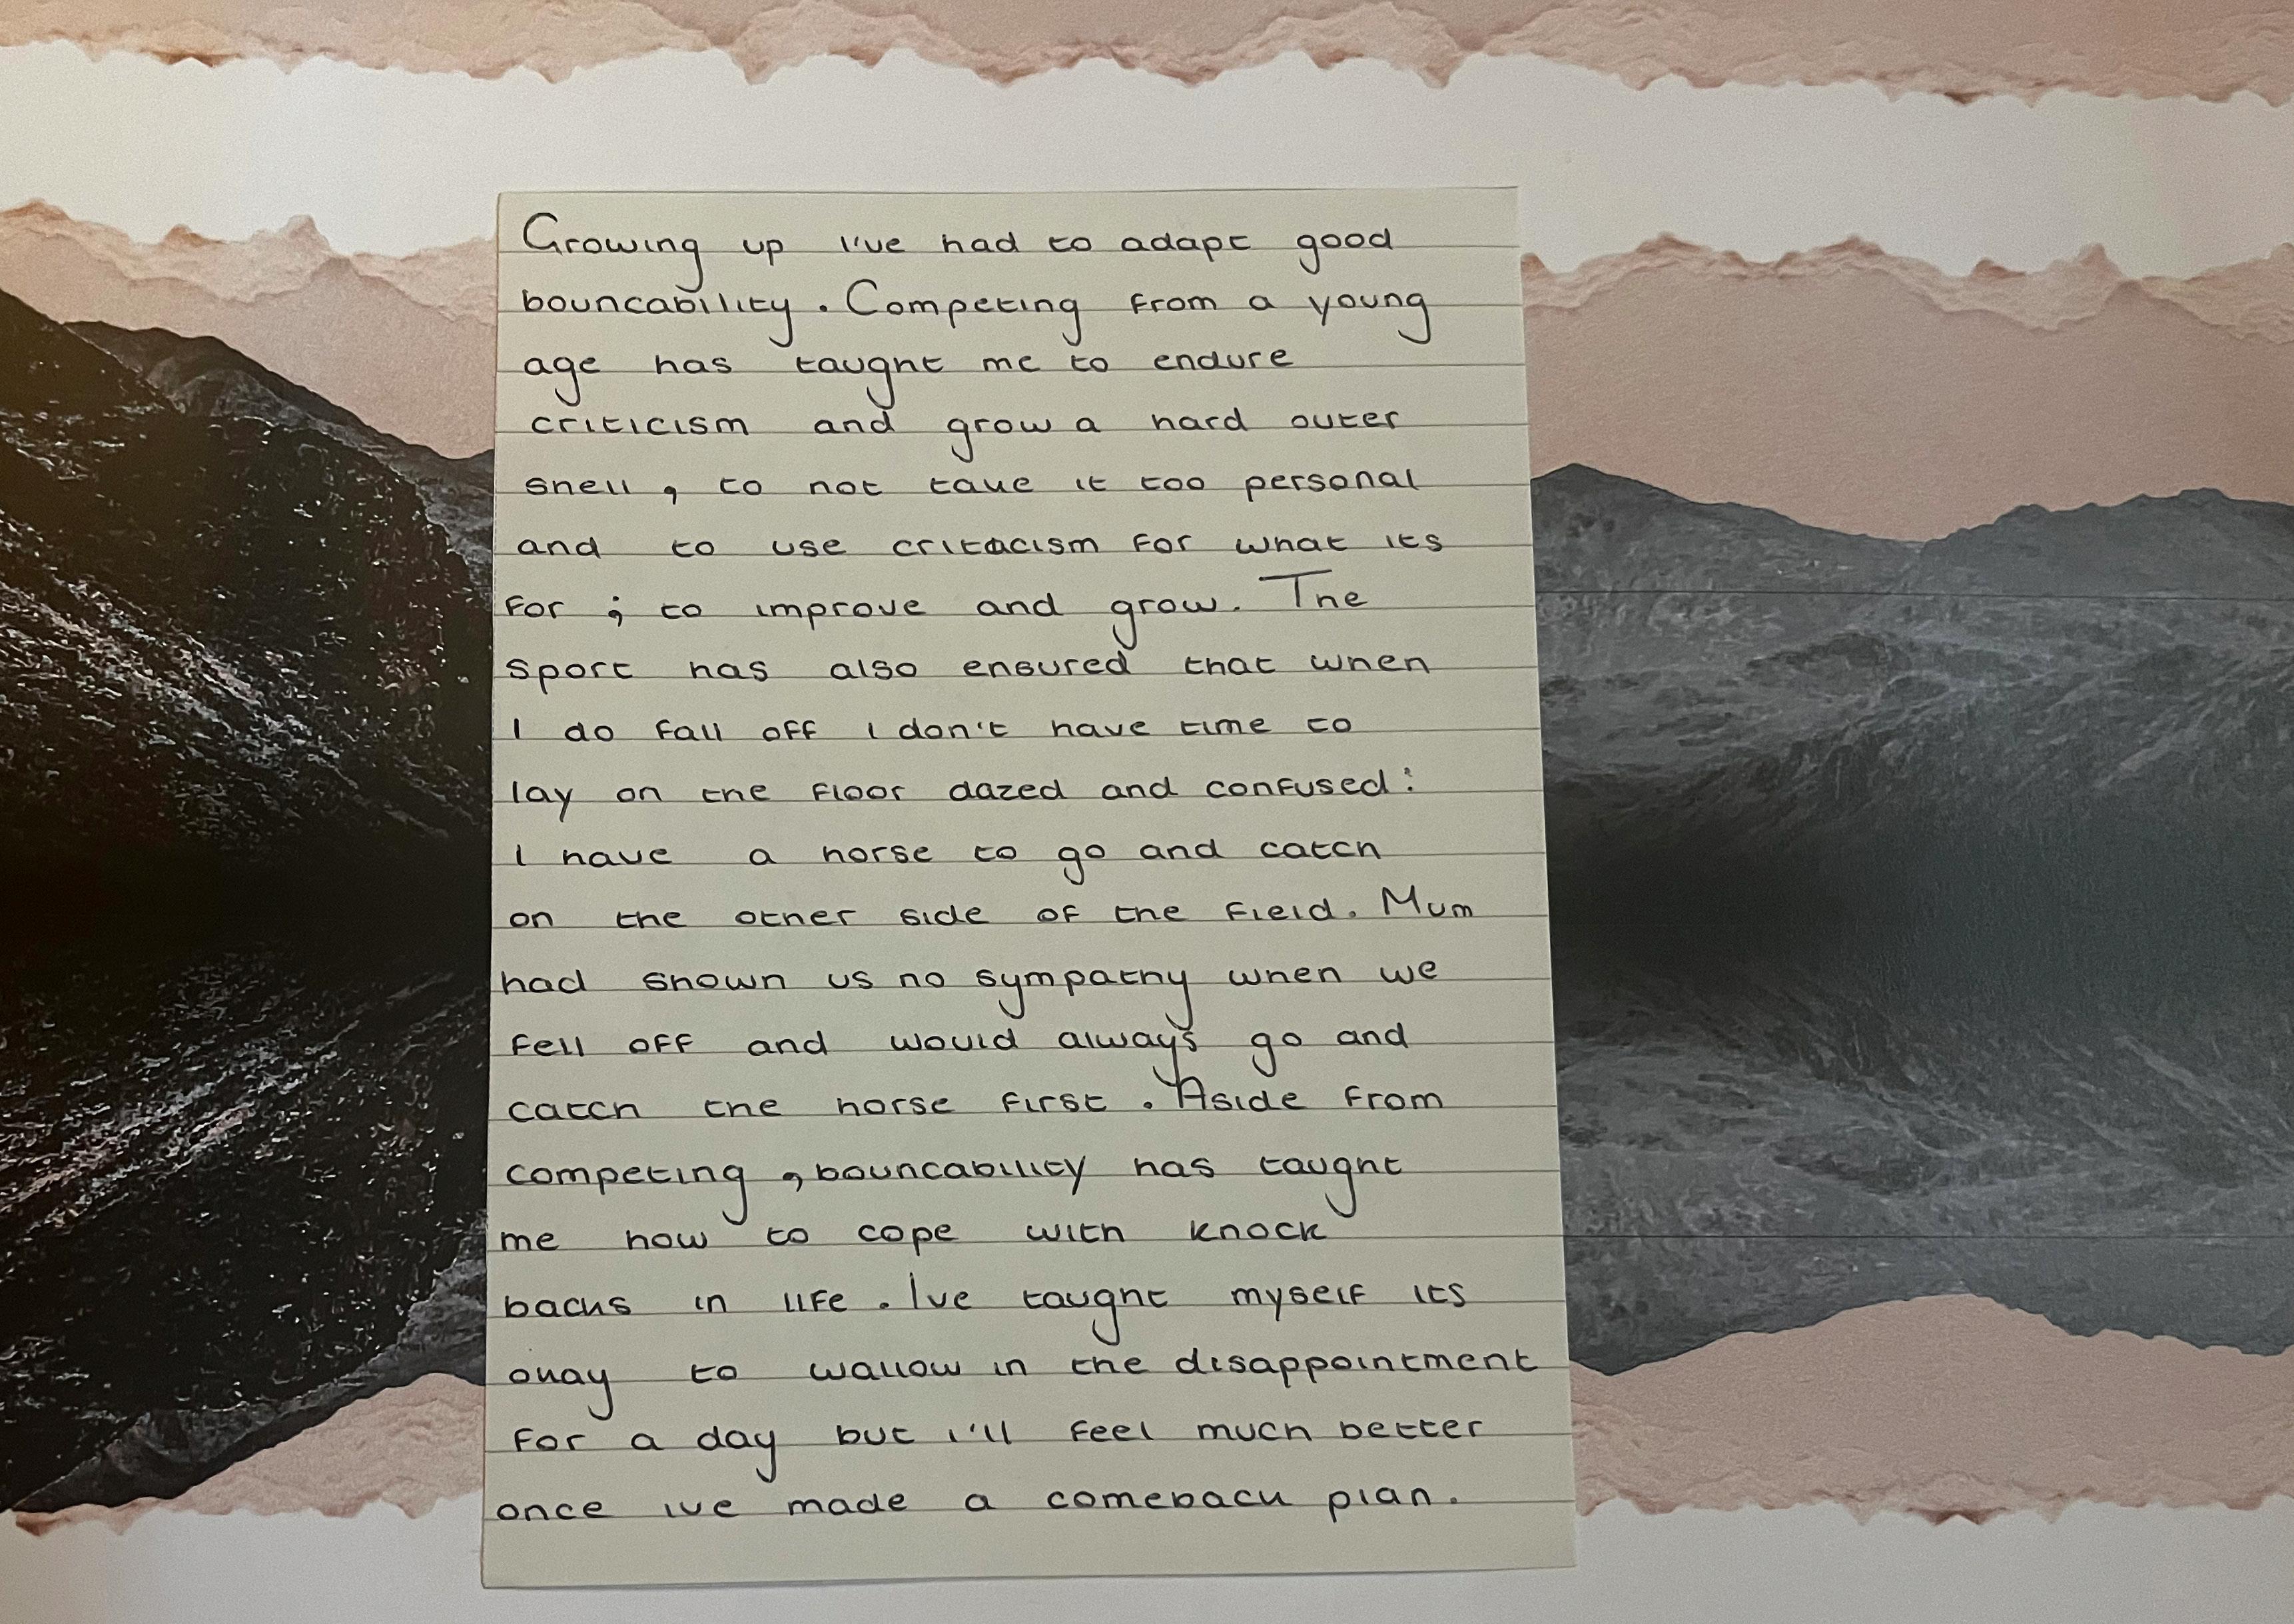 Growing up I've had to adapt good
bouncability. Competing from a young
age has taught me to endure
criticism and grow a hard outer
shell, to not take it too personal
and to use critacism for what its
for ; to improve and grow. The
sport has also ensured that when
I do fall off I don't have time to
lay on the floor dazed and confused:
I have a horse to go and catch
on the other side of the field. Mum
had shown us no sympathy when we
fell off and would always go and
catch the horse first. Aside from
competing, bouncability has taught
me how to cope with knock
backs in life. I've taught myself its
okay to wallow in the disappointment
for a day but i'll feel much better
once ive made a comeback plan.